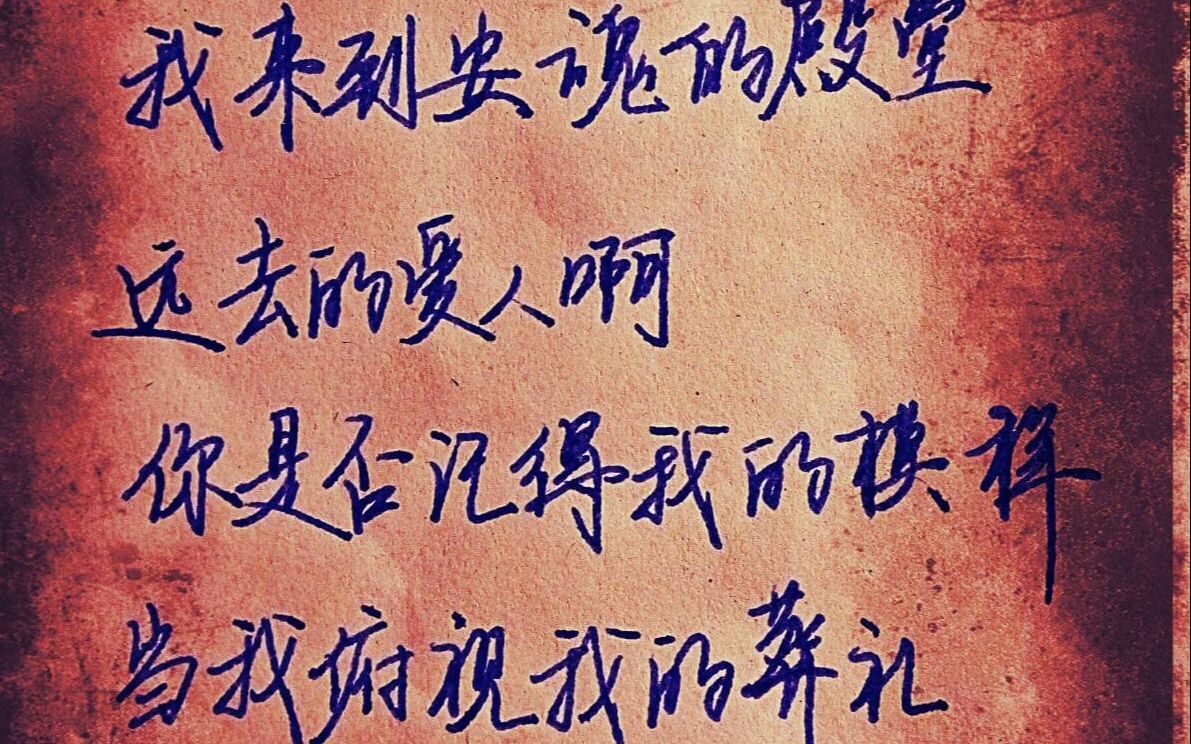 我来到安魂的殿堂
远去的爱人啊
你是否记得我的模样
当我俯视我的葬礼